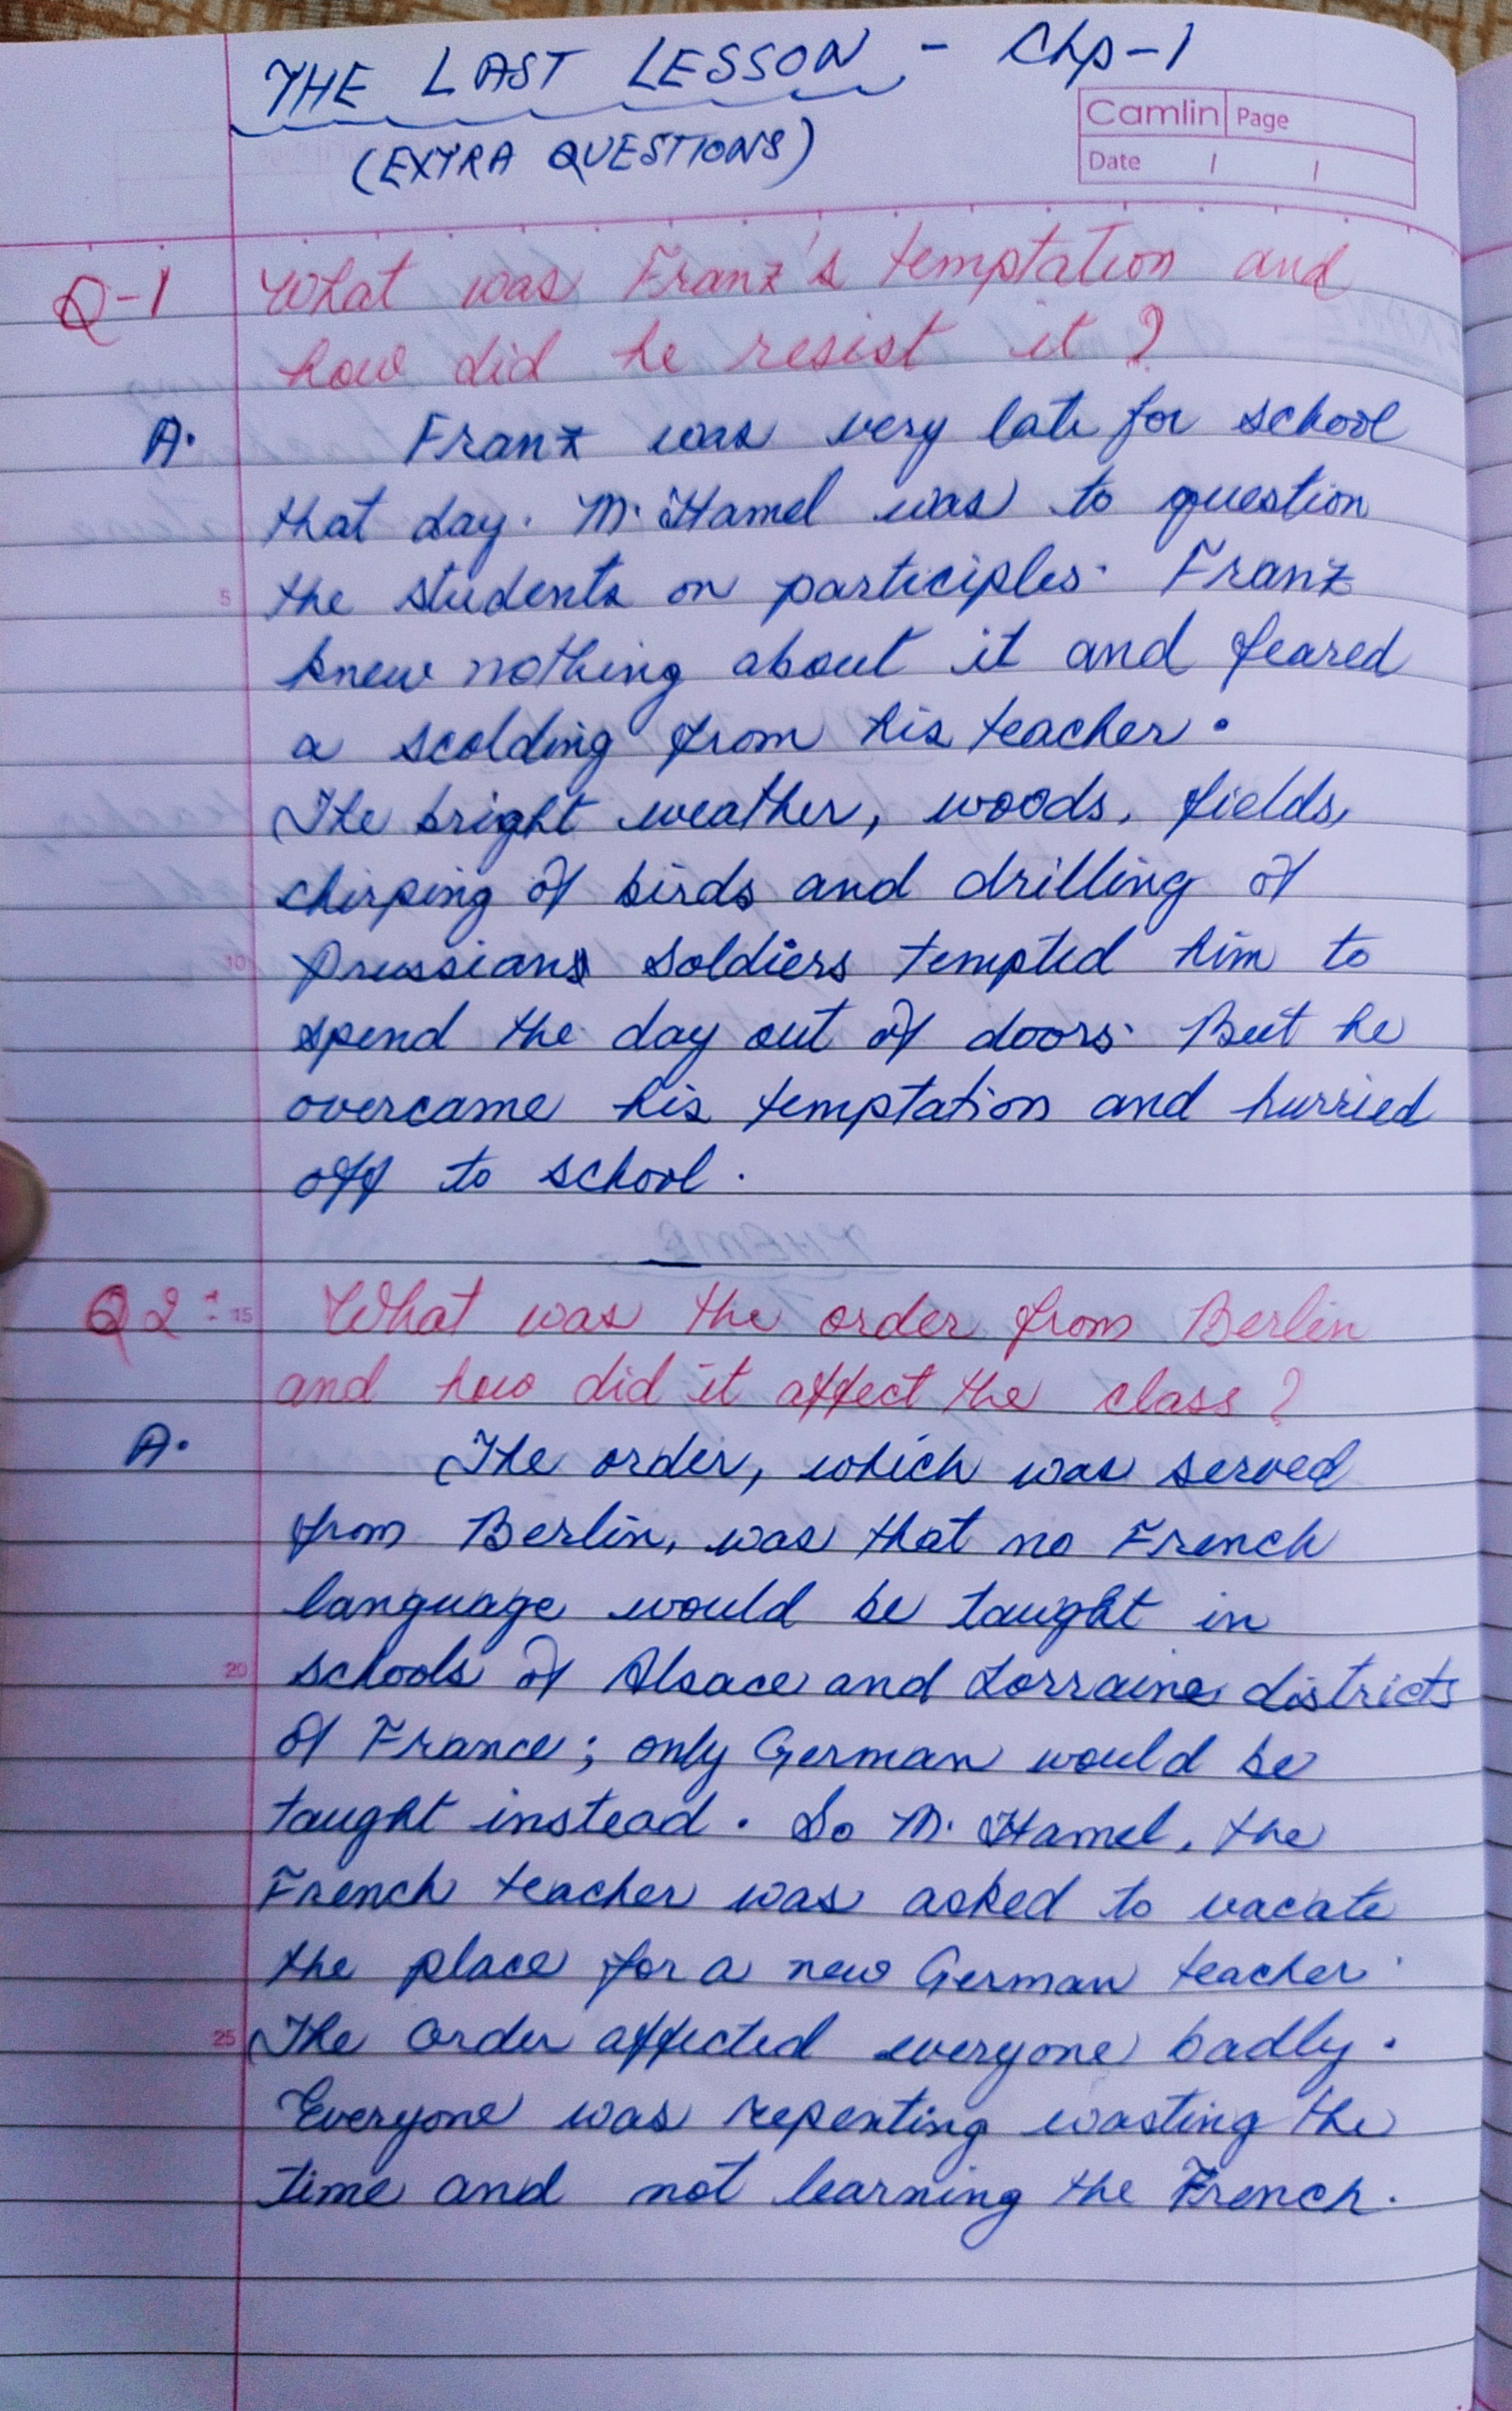 THE LAST LESSON - Chp-1
(EXTRA QUESTIONS)
Camlin Page
Date / /
Q-1 What was Franz's temptation and
how did he resist it ?
A. Franz was very late for school
that day. M. Hamel was to question
5 the students on participles. Franz
knew nothing about it and feared
a scolding from his teacher.
The bright weather, woods, fields,
chirping of birds and drilling of
10 Prussians soldiers tempted him to
spend the day out of doors. But he
overcame his temptation and hurried
off to school.
Q2: 15 What was the order from Berlin
and how did it affect the class ?
A. The order, which was served
from Berlin, was that no French
language would be taught in
20 schools of Alsace and Lorraine districts
of France; only German would be
taught instead. So M. Hamel, the
French teacher was asked to vacate
the place for a new German teacher.
25 The order affected everyone badly.
Everyone was repenting wasting the
time and not learning the French.